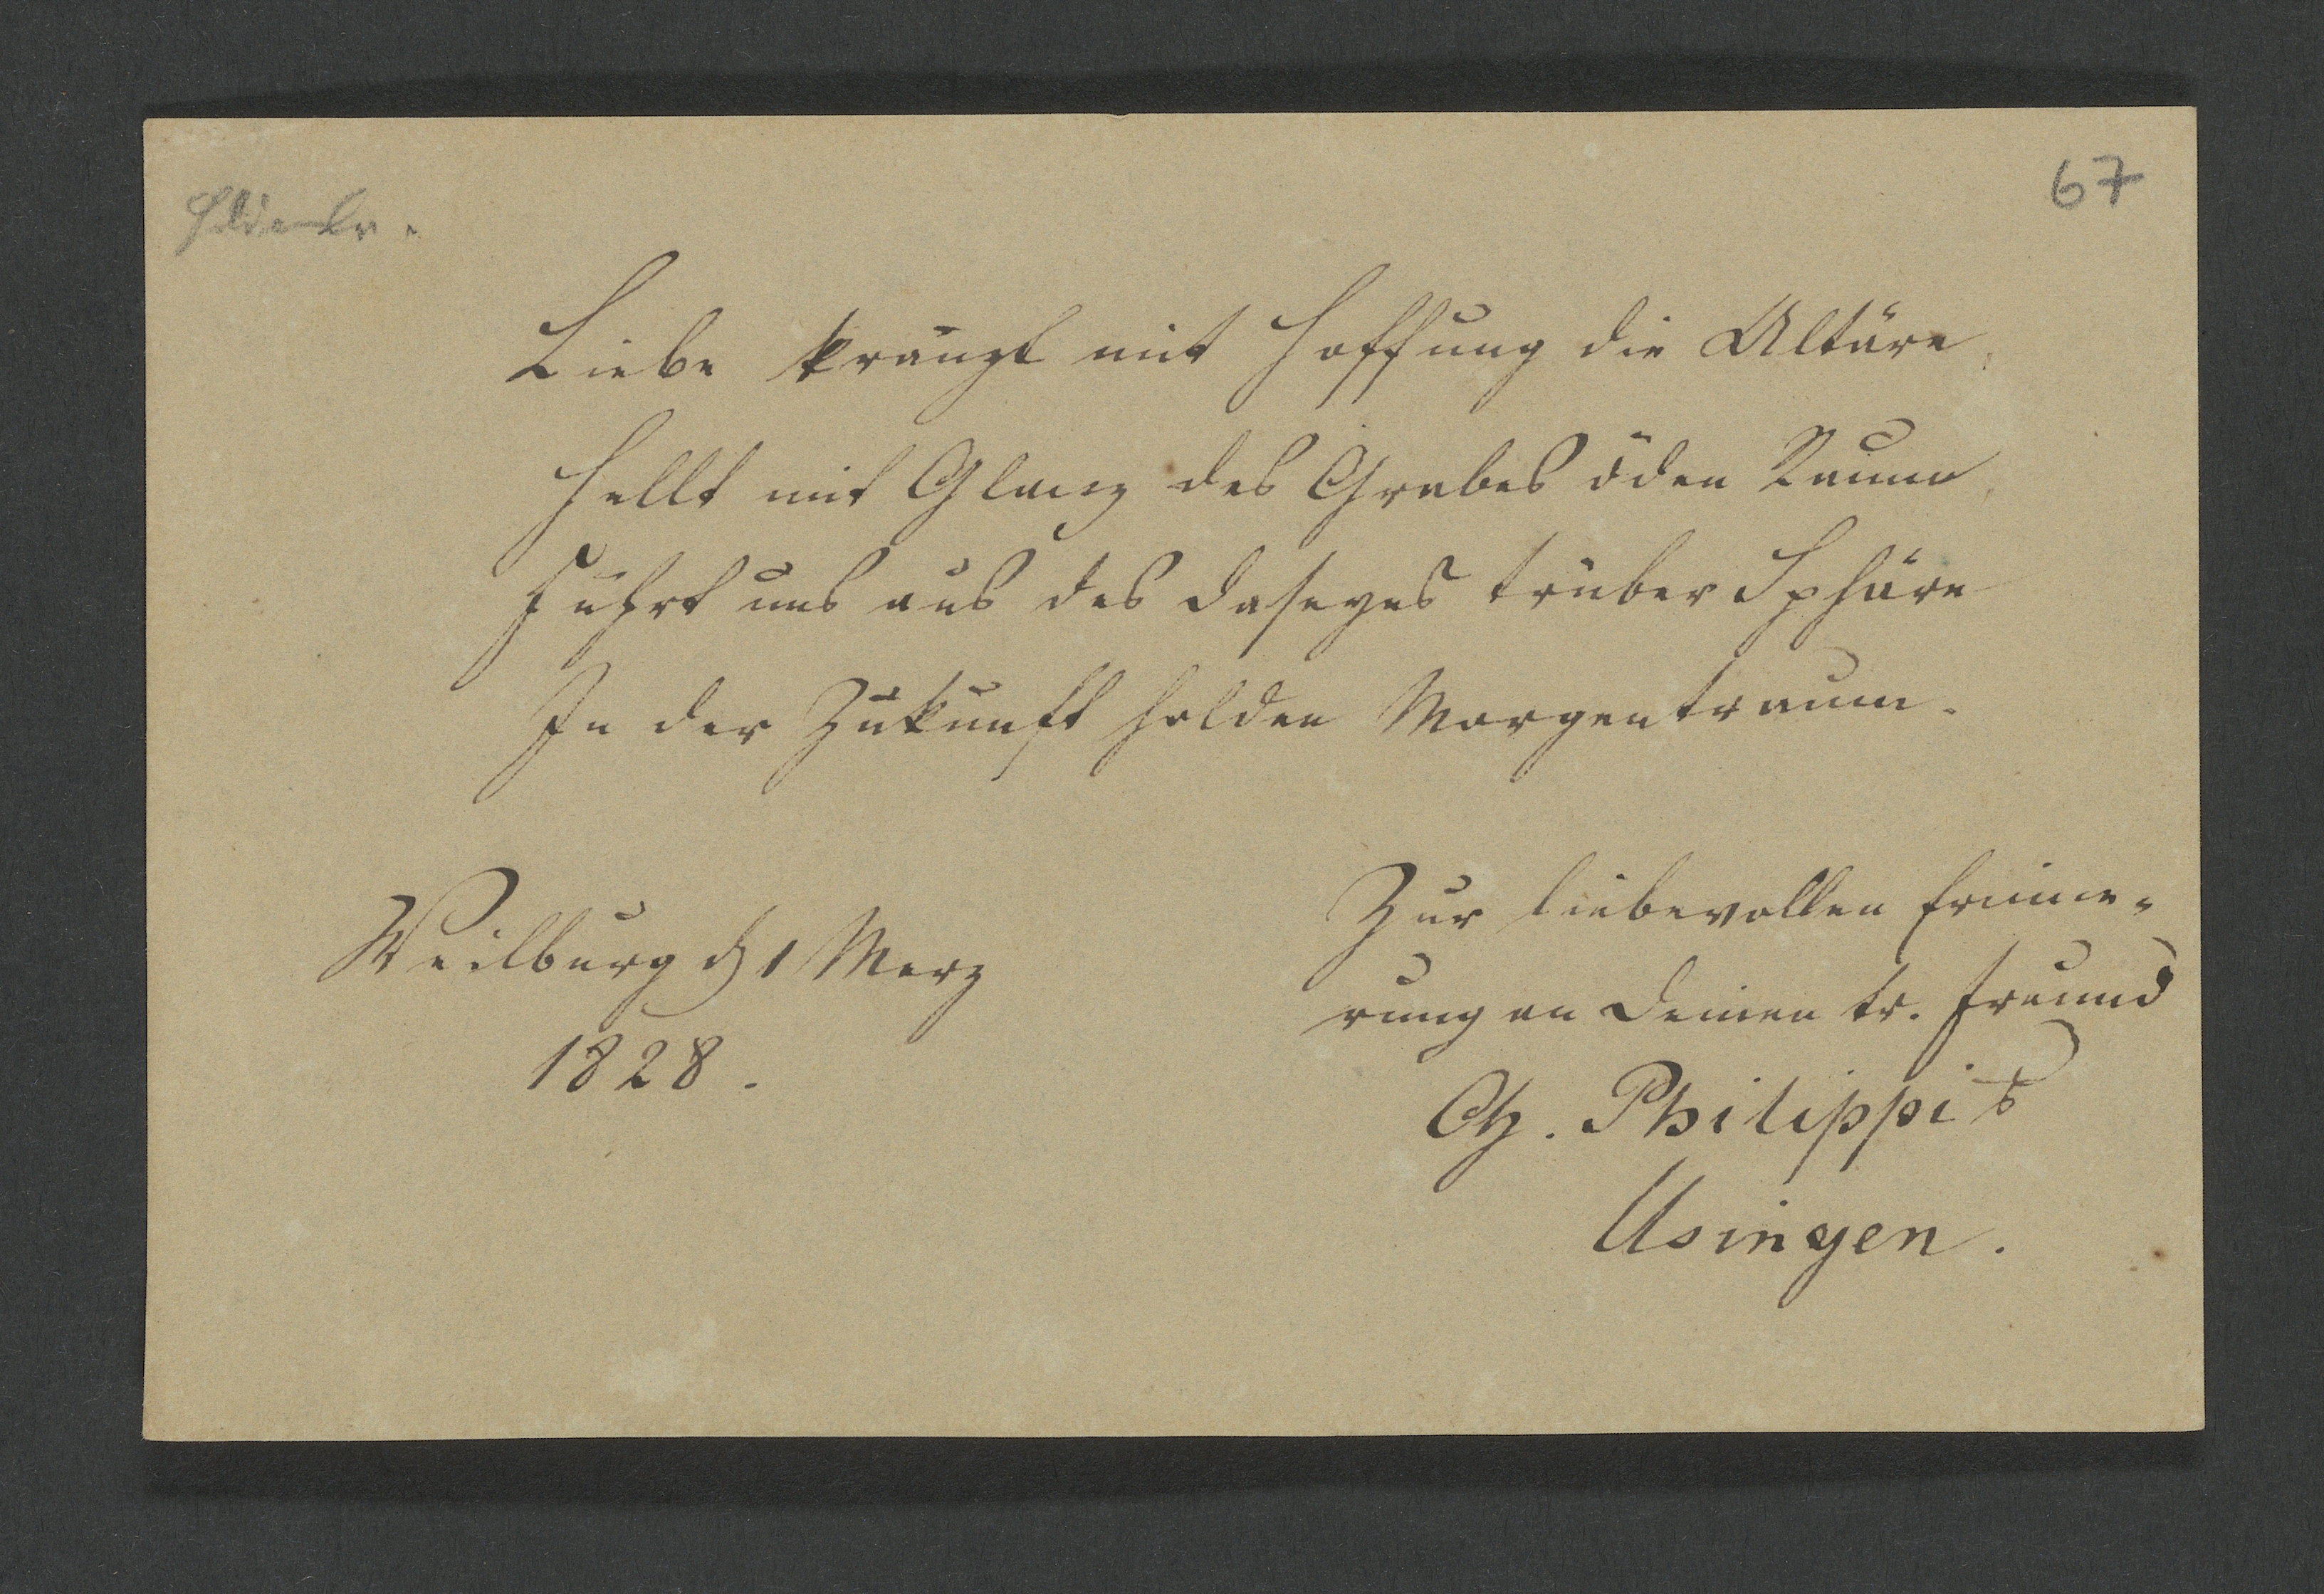 67
Liebe kränzt mit Hoffung die Altäre,
Hellt mit Glanz des Grabes öden Raum,
Führt uns aus des Daseyns trüber Sphäre
In der Zukunft holden Morgentraum.
Weilburg d 1 Merz
1828.
Zur liebevollen Erinne-
rung an Deinen tr. Freund
Ch. Philippi
Usingen.